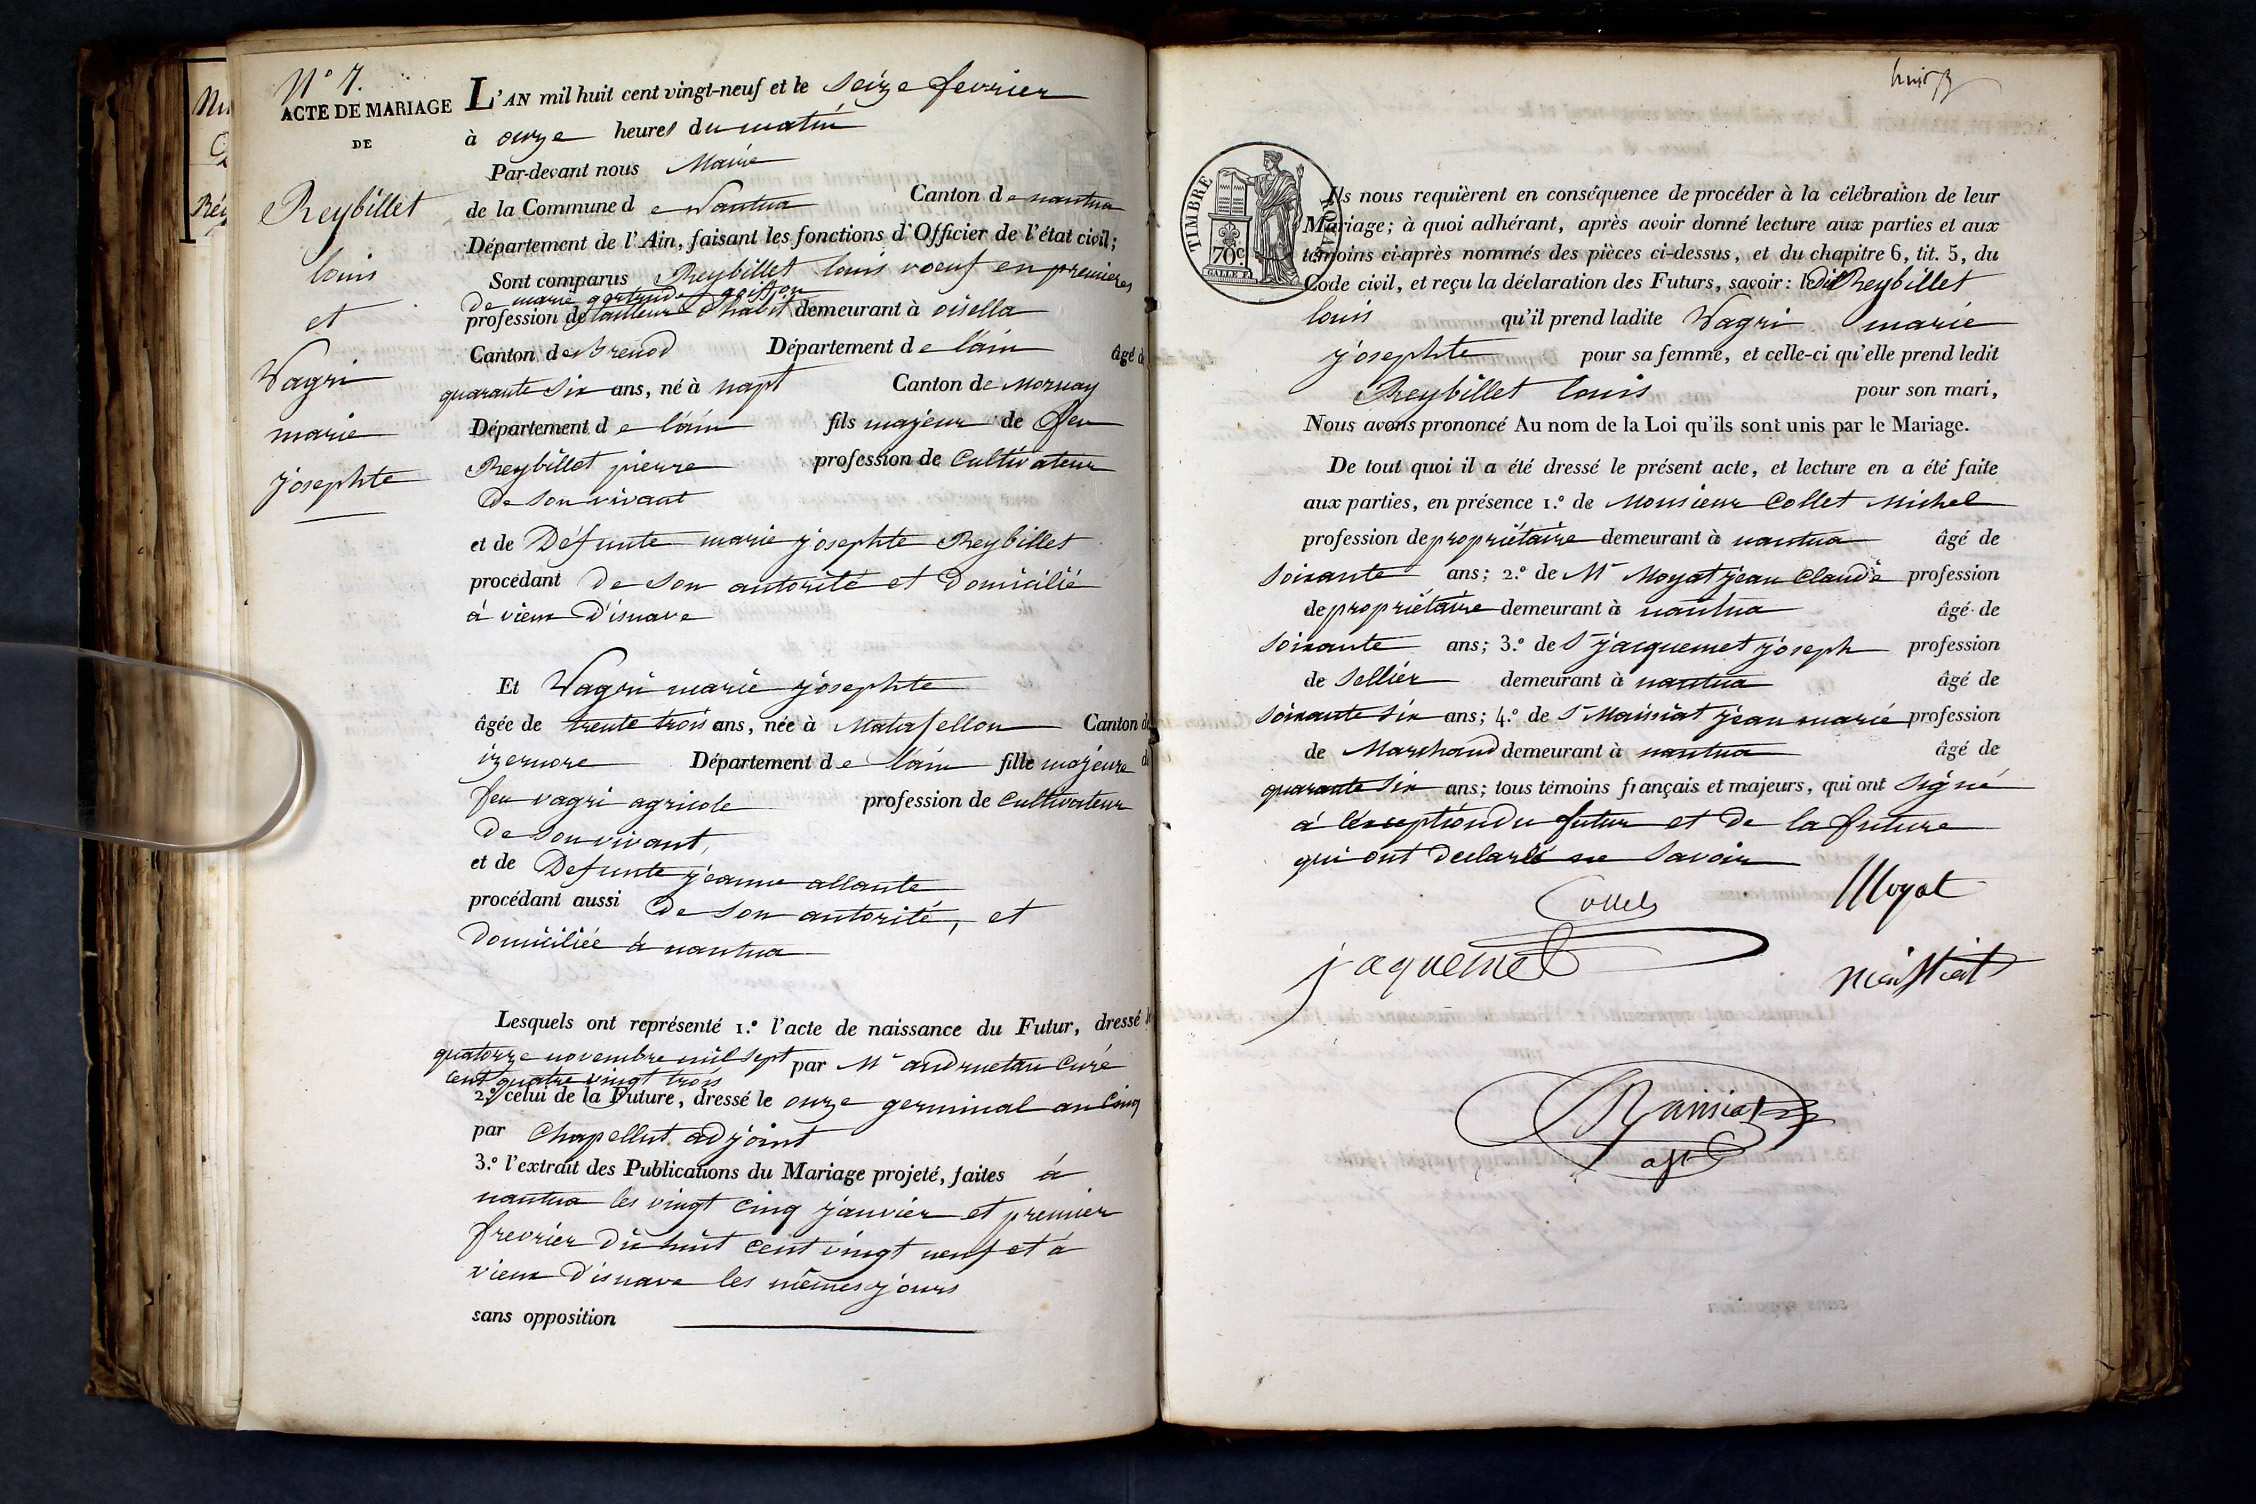 N° 7.
ACTE DE MARIAGE
DE
Reybillet
louis
et
Vagri
marie
josephte
L'AN mil huit cent vingt-neuf et le seize fevrier
à onze heures du matin
Par-devant nous Maire
de la Commune de Nantua Canton de nantua
Département de l'Ain, faisant les fonctions d'Officier de l'état civil;
Sont comparus Reybillet louis voeuf en premieres
de marie gertrude goiffon
profession de tailleur d'habit demeurant à oisella
Canton de Brenod Département de l'ain âgé de
quarante six ans, né à napt Canton de Mornay
Département de l'ain fils majeur de feu
Reybillet pierre profession de Cultivateur
de son vivant
et de Défunte marie josephte Reybillet
procédant de son autorité et Domicilié
à vieux D'isnave
Et Vagri marie josephte
âgée de trente trois ans, née à Matafellon Canton de
izernore Département de l'ain fille majeure de
feu vagri agricole profession de Cultivateur
de son vivant,
et de Defunte jeanne allante
procédant aussi de son autorité, et
Domiciliée à nantua
Lesquels ont représenté 1.° l'acte de naissance du Futur, dressé le
quatorze novembre mil sept par Mr andruetan Curé
cent quatre vingt trois
2.° celui de la Future, dressé le onze germinal an Cinq
par Chapellut adjoint
3.° l'extrait des Publications du Mariage projeté, faites à
nantua les vingt cinq janvier et premier
frevrier dix huit cent vingt neuf et à
vieux D'isnave les mêmes jours
sans opposition
huit
TIMBRE ROYAL
70c.
Ils nous requièrent en conséquence de procéder à la célébration de leur
Mariage; à quoi adhérant, après avoir donné lecture aux parties et aux
témoins ci-après nommés des pièces ci-dessus, et du chapitre 6, tit. 5, du
Code civil, et reçu la déclaration des Futurs, savoir: ledit Reybillet
louis qu'il prend ladite Vagri marie
josephte pour sa femme, et celle-ci qu'elle prend ledit
Reybillet louis pour son mari,
Nous avons prononcé Au nom de la Loi qu'ils sont unis par le Mariage.
De tout quoi il a été dressé le présent acte, et lecture en a été faite
aux parties, en présence 1.° de Monsieur Collet Michel
profession de propriétaire demeurant à nantua âgé de
soixante ans; 2.° de Mr Moyat jean Claude profession
de propriétaire demeurant à nantua âgé de
soixante ans; 3.° de Sr jacquemet joseph profession
de Sellier demeurant à nantua âgé de
soixante six ans; 4.° de Sr Maissiat jean marie profession
de Marchand demeurant à nantua âgé de
quarante six ans; tous témoins français et majeurs, qui ont signé
à l'exception du futur et de la future
qui ont declarés ne savoir
Collet
Moyat
jaquemet
Maissiat